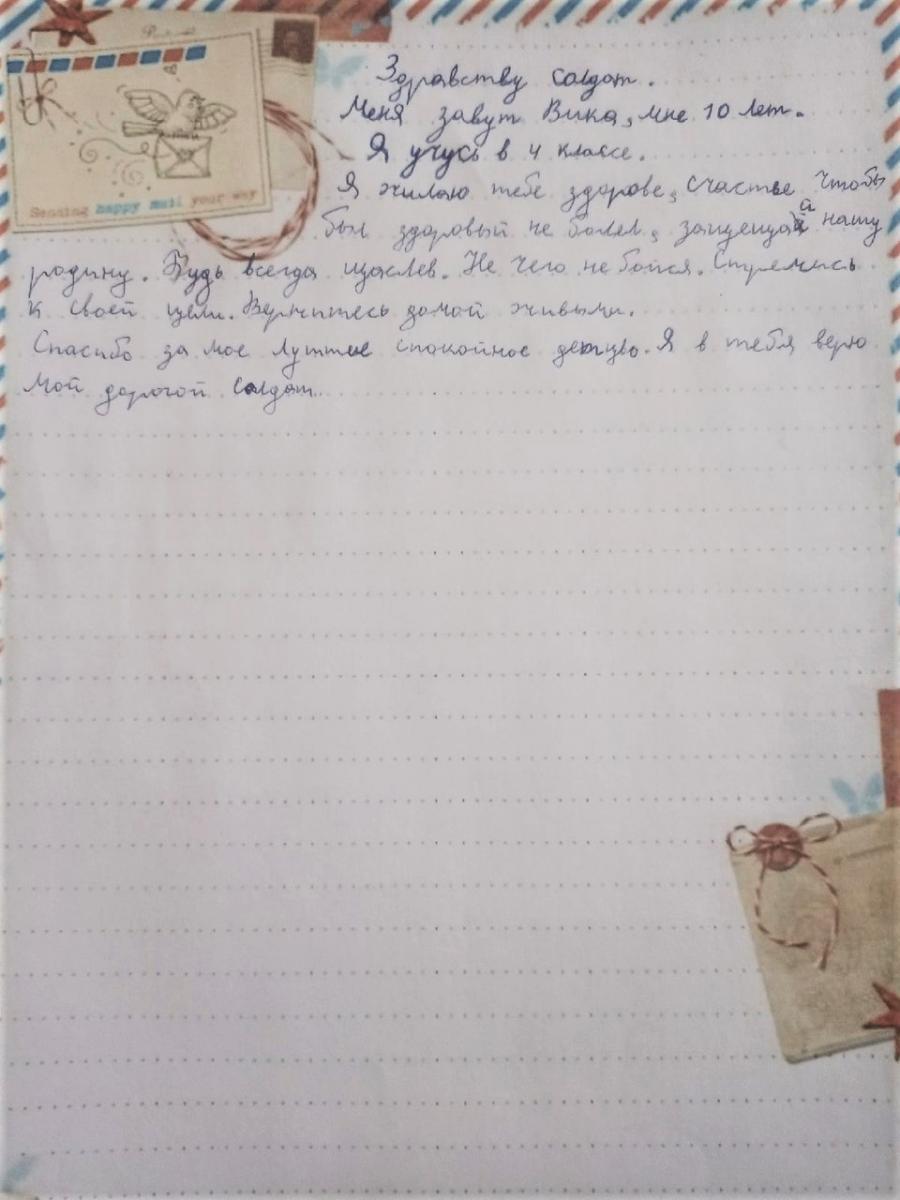 Sending happy mail your way
Здравству солдат.
Меня завут Вика, мне 10 лет.
Я учусь в 4 классе.
Я жилаю тебе здорове, счастье чтобы
был здоровый не болел, защещай нашу
родину. Будь всегда щаслев. Не чего не бойся. Стремись
к своей цели. Вернитесь домой живыми.
Спасибо за мое лутшие спокойное детцво. Я в тебя верю
мой дорогой солдат.